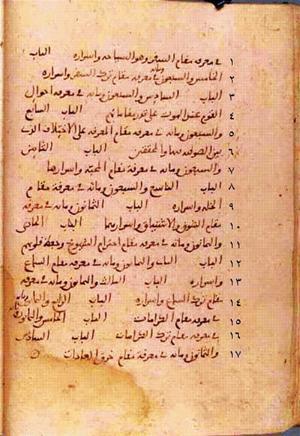 ١ في معرفة مقام السفر وهو السياحة واسراره الباب
٢ الخامس والسبعون ومائة في معرفة مقام ترك السفر واسراره
٣ الباب السادس والسبعون ومائة في معرفة احوال
٤ القوم عند الموت على قدر مقاماتهم الباب السابع
٥ والسبعون ومائة في معرفة مقام المعرفة على الاختلاف الذي
٦ بين الصوفية والمحققين الباب الثامن
٧ والسبعون ومائة في معرفة مقام المحبة واسرارها
٨ الباب التاسع والسبعون ومائة في معرفة مقام
٩ الخلة واسراره الباب الثمانون ومائة في معرفة
١٠ مقام الشوق والاشتياق واسرارهما الباب الحادي
١١ والثمانون ومائة في معرفة مقام احترام الشيوخ وحفظ قلوبهم
١٢ الباب الثاني والثمانون ومائة في معرفة مقام السماع
١٣ واسراره الباب الثالث والثمانون ومائة في معرفة
١٤ مقام ترك السماع واسراره الباب الرابع والثمانون ومائة
١٥ في معرفة مقام الكرامات الباب الخامس والثمانون ومائة
١٦ في معرفة مقام ترك الكرامات الباب السادس
١٧ والثمانون ومائة في معرفة مقام خرق العادات